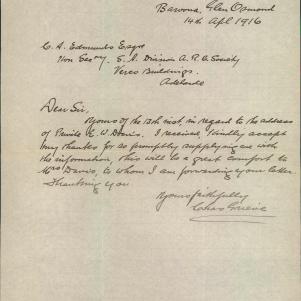 Barwona, Glen Osmond
14th Apl 1916
C. A. Edmunds Esqre
Hon Secry. S. A. Division A. R. C. Society
Verco Buildings.
Adelaide
Dear Sir,
Yours of the 13th inst, in regard to the address
of Private E. W. Davis. I received, kindly accept
my thanks for so promptly supplying me with
the information, this will be a great comfort to
Mrs Davis, to whom I am forwarding your letter
Thanking you
Yours faithfully